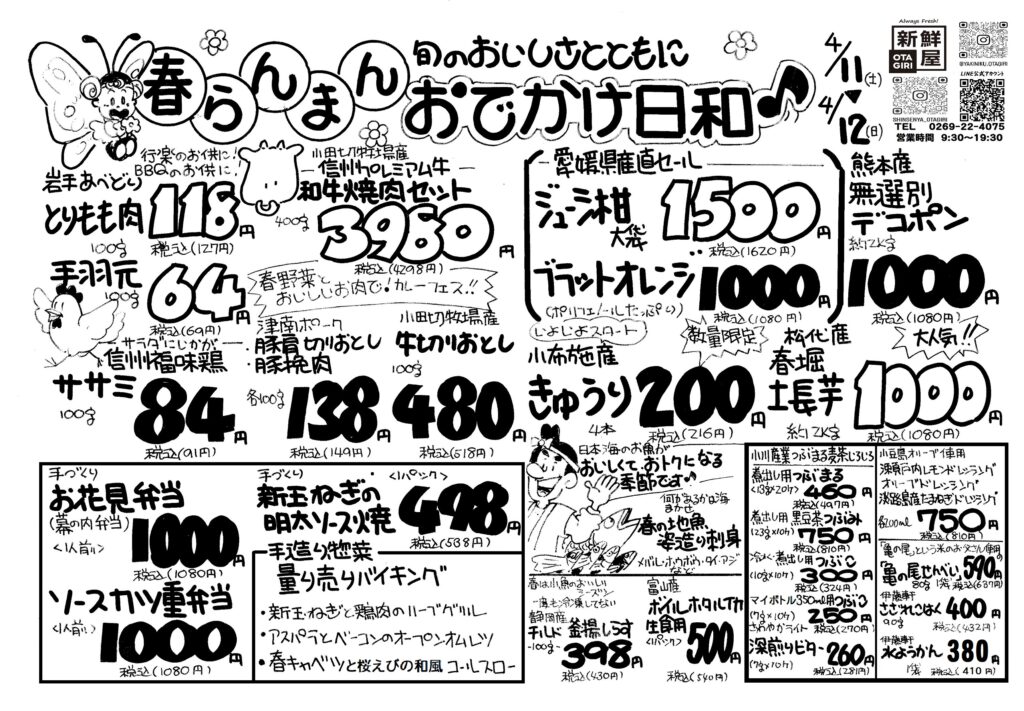 春らんまん
旬のおいしさとともに
おでかけ日和♪
4/11(土)
4/12(日)
Always Fresh!
新鮮屋
OTAGIRI
@YAKINIKU_OTAGIRI
LINE公式アカウント
SHINSENYA_OTAGIRI
TEL 0269-22-4075
営業時間 9:30~19:30
行楽のお供に!
BBQのお供に!
岩手あべどり
とりもも肉
100g
118円
税込(127円)
手羽元
100g
64円
税込(69円)
小田切牧場県産
信州プレミアム牛
和牛焼肉セット
400g
3980円
税込(4298円)
春野菜と
おいしいお肉で!カレーフェス!!
サラダにしかが
信州福味鶏
ササミ
100g
84円
税込(91円)
津南ポーク
豚肩切りおとし
豚挽肉
各100g
138円
税込(149円)
小田切牧場県産
牛切りおとし
100g
480円
税込(518円)
愛媛県産直セール
ジューシー柑
大袋
1500円
税込(1620円)
ブラッドオレンジ
1000円
(ポリフェノールたっぷり)
税込(1080円)
熊本産
無選別
デコポン
約2kg
1000円
税込(1080円)
いよいよスタート
小布施産
きゅうり
4本
数量限定
200円
税込(216円)
松代産
春堀
長芋
約2kg
大人気!!
1000円
税込(1080円)
手づくり
お花見弁当
(幕の内弁当)
<1人前>
1000円
税込(1080円)
ソースカツ重弁当
<1人前>
1000円
税込(1080円)
手づくり
新玉ねぎの
明太ソース焼
<1パック>
498円
税込(538円)
手造り惣菜
量り売りバイキング
・新玉ねぎと鶏肉のハーブグリル
・アスパラとベーコンのオープンオムレツ
・春キャベツと桜えびの和風コールスロー
日本海のお魚が
おいしくて、おトクになる
季節です♪
何があるかは海
まかせ
春の地魚
姿造り刺身
メバル・ホウボウ・タイ・アジ
など
春は小魚のおいしい
シーズン
静岡産
チルド 釜揚しらす
100g
398円
税込(430円)
富山産
ボイルホタルイカ
生食用
<1パック>
500円
税込(540円)
小川産業つぶまる麦茶いろいろ
煮出し用つぶまる
460円
税込(497円)
煮出し用 黒豆茶つぶみみ
750円
税込(810円)
冷水・煮出し用つぶこ
(10g×10ケ)
300円
税込(324円)
マイボトル350ml用つぶこ
250円
さわやかライト
税込(270円)
深煎りビター
260円
税込(281円)
小豆島オリーブ使用
瀬戸内レモンドレッシング
オリーブドレッシング
淡路島産たまねぎドレッシング
各200ml
750円
税込(810円)
「亀の尾」という米のお
「亀の尾せんべい」
80g
590円
税込(637円)
伊藤軒
さざれごはん
90g
400円
税込(432円)
伊藤軒
水ようかん
380円
税込(410円)